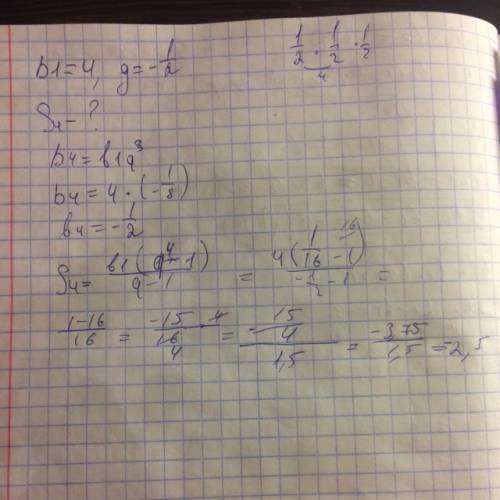 b1=4, q=-1/2
1/2 · 1/2 · 1/2
4
S4-?
b4=b1q³
b4=4·(-1/8)
b4=-1/2
S4= b1(q⁴-1)/(q-1) = 4(1/16 - 1)/(-1/2-1) =
(1-16)/16 = -15/16 = (-15/4)/1,5 = -3,75/1,5 =2,5